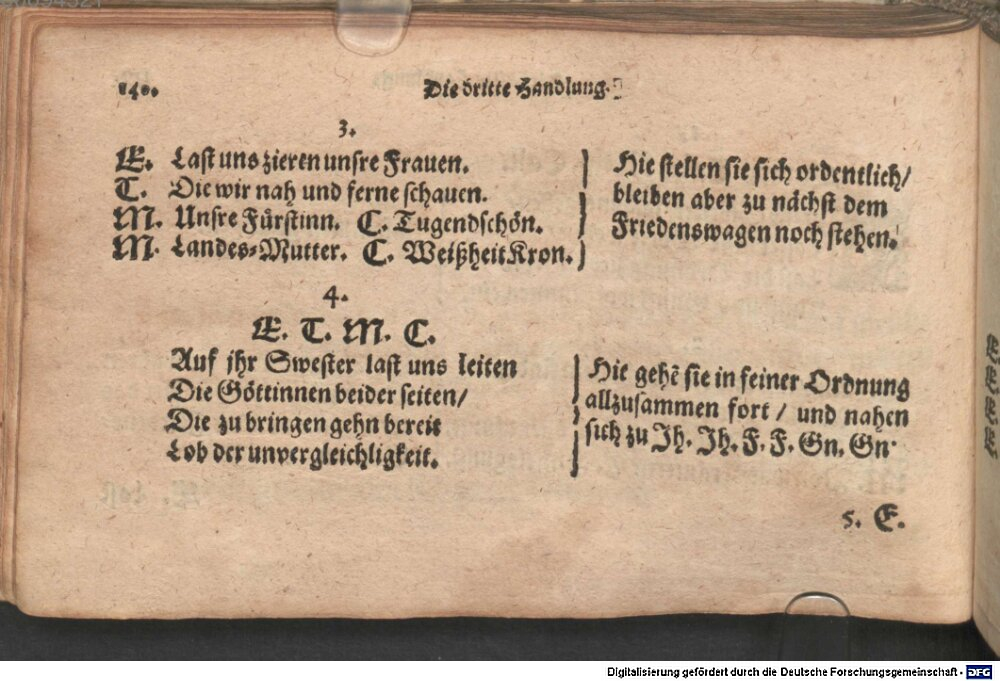 140.
Die dritte Handlung.
3.
E. Last uns zieren unsre Frauen.
T. Die wir nah und ferne schauen.
M. Unsre Fürstinn. C. Tugendschön.
M. Landes-Mutter. C. Weißheit Kron.
Hie stellen sie sich ordentlich/
bleiben aber zu nächst dem
Friedenswagen noch stehen.
4.
E. T. M. C.
Auf jhr Swester last uns leiten
Die Göttinnen beider seiten/
Die zu bringen gehn bereit
Lob der unvergleichligkeit.
Hie gehē sie in feiner Ordnung
allzusammen fort / und nahen
sich zu Jh. Jh. F. F. Gn. Gn.
5. E.
Digitalisierung gefördert durch die Deutsche Forschungsgemeinschaft - DFG